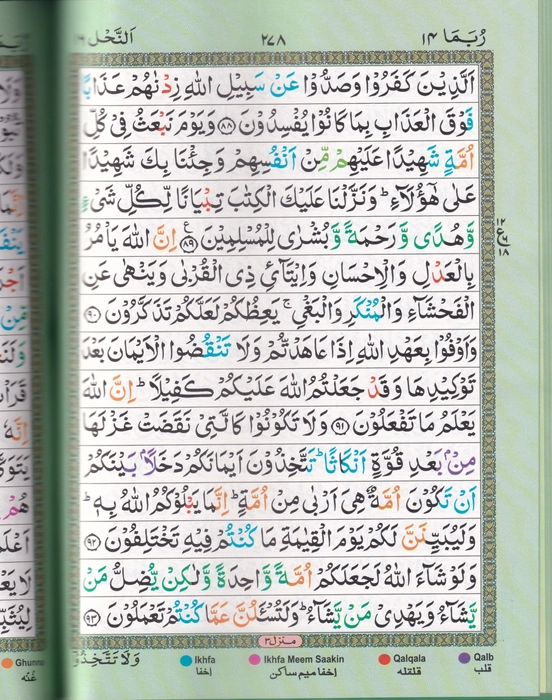 رُبَمَا ١٤
٢٧٨
اَلنَّحْل
اَلَّذِيْنَ كَفَرُوْا وَصَدُّوْا عَنْ سَبِيْلِ اللّٰهِ زِدْنٰهُمْ عَذَابًا
فَوْقَ الْعَذَابِ بِمَا كَانُوْا يُفْسِدُوْنَ ﴿٨٨﴾ وَيَوْمَ نَبْعَثُ فِيْ كُلِّ
اُمَّةٍ شَهِيْدًا عَلَيْهِمْ مِّنْ اَنْفُسِهِمْ وَجِئْنَا بِكَ شَهِيْدًا
عَلٰى هٰٓؤُلَآءِ ؕ وَنَزَّلْنَا عَلَيْكَ الْكِتٰبَ تِبْيَانًا لِّكُلِّ شَيْءٍ
وَّهُدًى وَّرَحْمَةً وَّبُشْرٰى لِلْمُسْلِمِيْنَ ﴿٨٩﴾ اِنَّ اللّٰهَ يَاْمُرُ
بِالْعَدْلِ وَالْاِحْسَانِ وَاِيْتَآئِ ذِي الْقُرْبٰى وَيَنْهٰى عَنِ
الْفَحْشَآءِ وَالْمُنْكَرِ وَالْبَغْيِ ۚ يَعِظُكُمْ لَعَلَّكُمْ تَذَكَّرُوْنَ ﴿٩٠﴾
وَاَوْفُوْا بِعَهْدِ اللّٰهِ اِذَا عَاهَدْتُّمْ وَلَا تَنْقُضُوا الْاَيْمَانَ بَعْدَ
تَوْكِيْدِهَا وَقَدْ جَعَلْتُمُ اللّٰهَ عَلَيْكُمْ كَفِيْلًا ؕ اِنَّ اللّٰهَ
يَعْلَمُ مَا تَفْعَلُوْنَ ﴿٩١﴾ وَلَا تَكُوْنُوْا كَالَّتِيْ نَقَضَتْ غَزْلَهَا
مِنْۢ بَعْدِ قُوَّةٍ اَنْكَاثًا ؕ تَتَّخِذُوْنَ اَيْمَانَكُمْ دَخَلًاۢ بَيْنَكُمْ
اَنْ تَكُوْنَ اُمَّةٌ هِيَ اَرْبٰى مِنْ اُمَّةٍ ؕ اِنَّمَا يَبْلُوْكُمُ اللّٰهُ بِهٖ ؕ
وَلَيُبَيِّنَنَّ لَكُمْ يَوْمَ الْقِيٰمَةِ مَا كُنْتُمْ فِيْهِ تَخْتَلِفُوْنَ ﴿٩٢﴾
وَلَوْ شَآءَ اللّٰهُ لَجَعَلَكُمْ اُمَّةً وَّاحِدَةً وَّلٰكِنْ يُّضِلُّ مَنْ
يَّشَآءُ وَيَهْدِيْ مَنْ يَّشَآءُ ؕ وَلَتُسْئَلُنَّ عَمَّا كُنْتُمْ تَعْمَلُوْنَ ﴿٩٣﴾
١٢
ع
١٨
منزل٣
وَلَا تَتَّخِذُوْٓا
Ghunna
غُنّه
Ikhfa
إخفا
Ikhfa Meem Saakin
إخفا ميم ساكن
Qalqala
قلقله
Qalb
قلب